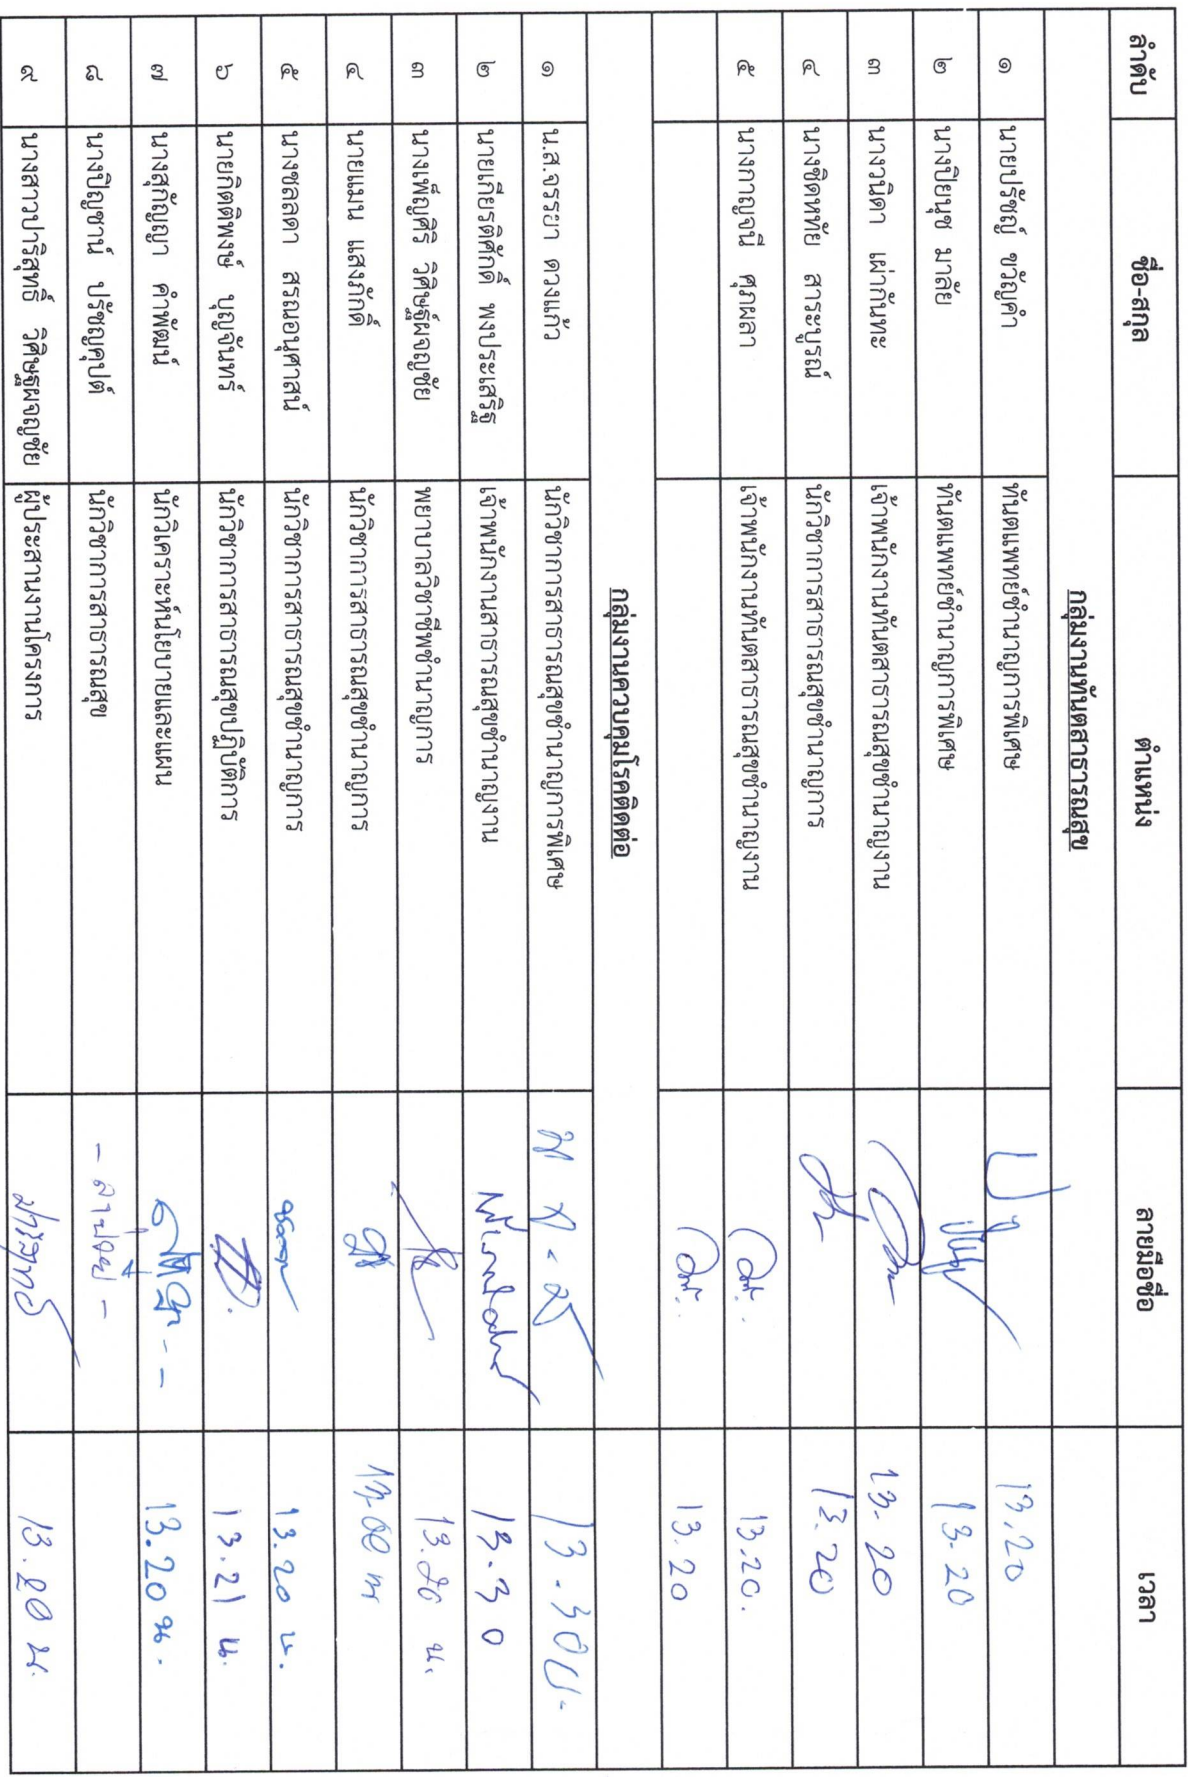 ลำดับ ชื่อ-สกุล ตำแหน่ง ลายมือชื่อ เวลา
กลุ่มงานทันตสาธารณสุข
๑ นายปรัชญ์ ขวัญคำ ทันตแพทย์ชำนาญการพิเศษ 13.20
๒ นางปิยนุช มาลัย ทันตแพทย์ชำนาญการพิเศษ 13.20
๓ นางวนิดา เผ่ากันทะ เจ้าพนักงานทันตสาธารณสุขชำนาญงาน 13.20
๔ นางชิดหทัย สาระบูรณ์ นักวิชาการสาธารณสุขชำนาญการ 13.20
๕ นางกาญจนี ศุภผลา เจ้าพนักงานทันตสาธารณสุขชำนาญงาน 13.20.
13.20
กลุ่มงานควบคุมโรคติดต่อ
๑ น.ส.จรรยา ดวงแก้ว นักวิชาการสาธารณสุขชำนาญการพิเศษ 13.30 น.
๒ นายเกียรติศักดิ์ พงประเสริฐ เจ้าพนักงานสาธารณสุขชำนาญงาน 13.30
๓ นางเพ็ญศิริ วิศิษฐ์ผจญชัย พยาบาลวิชาชีพชำนาญการ น.
๔ นายแมน แสงภักดิ์ นักวิชาการสาธารณสุขชำนาญการ
๕ นางชลลดา สรณอนุศาสน์ นักวิชาการสาธารณสุขชำนาญการ 13.20 น.
๖ นายกิตติพงษ์ บุญจันทร์ นักวิชาการสาธารณสุขปฏิบัติการ 13.21 น.
๗ นางสุกัญญา คำพัฒน์ นักวิเคราะห์นโยบายและแผน 13.20 น.
๘ นางปิญชาน์ ปรัชญคุปต์ นักวิชาการสาธารณสุข - ลาป่วย -
๙ นางสาวปาริสุทธิ์ วิศิษฐผจญชัย ผู้ประสานงานโครงการ 13.20 น.